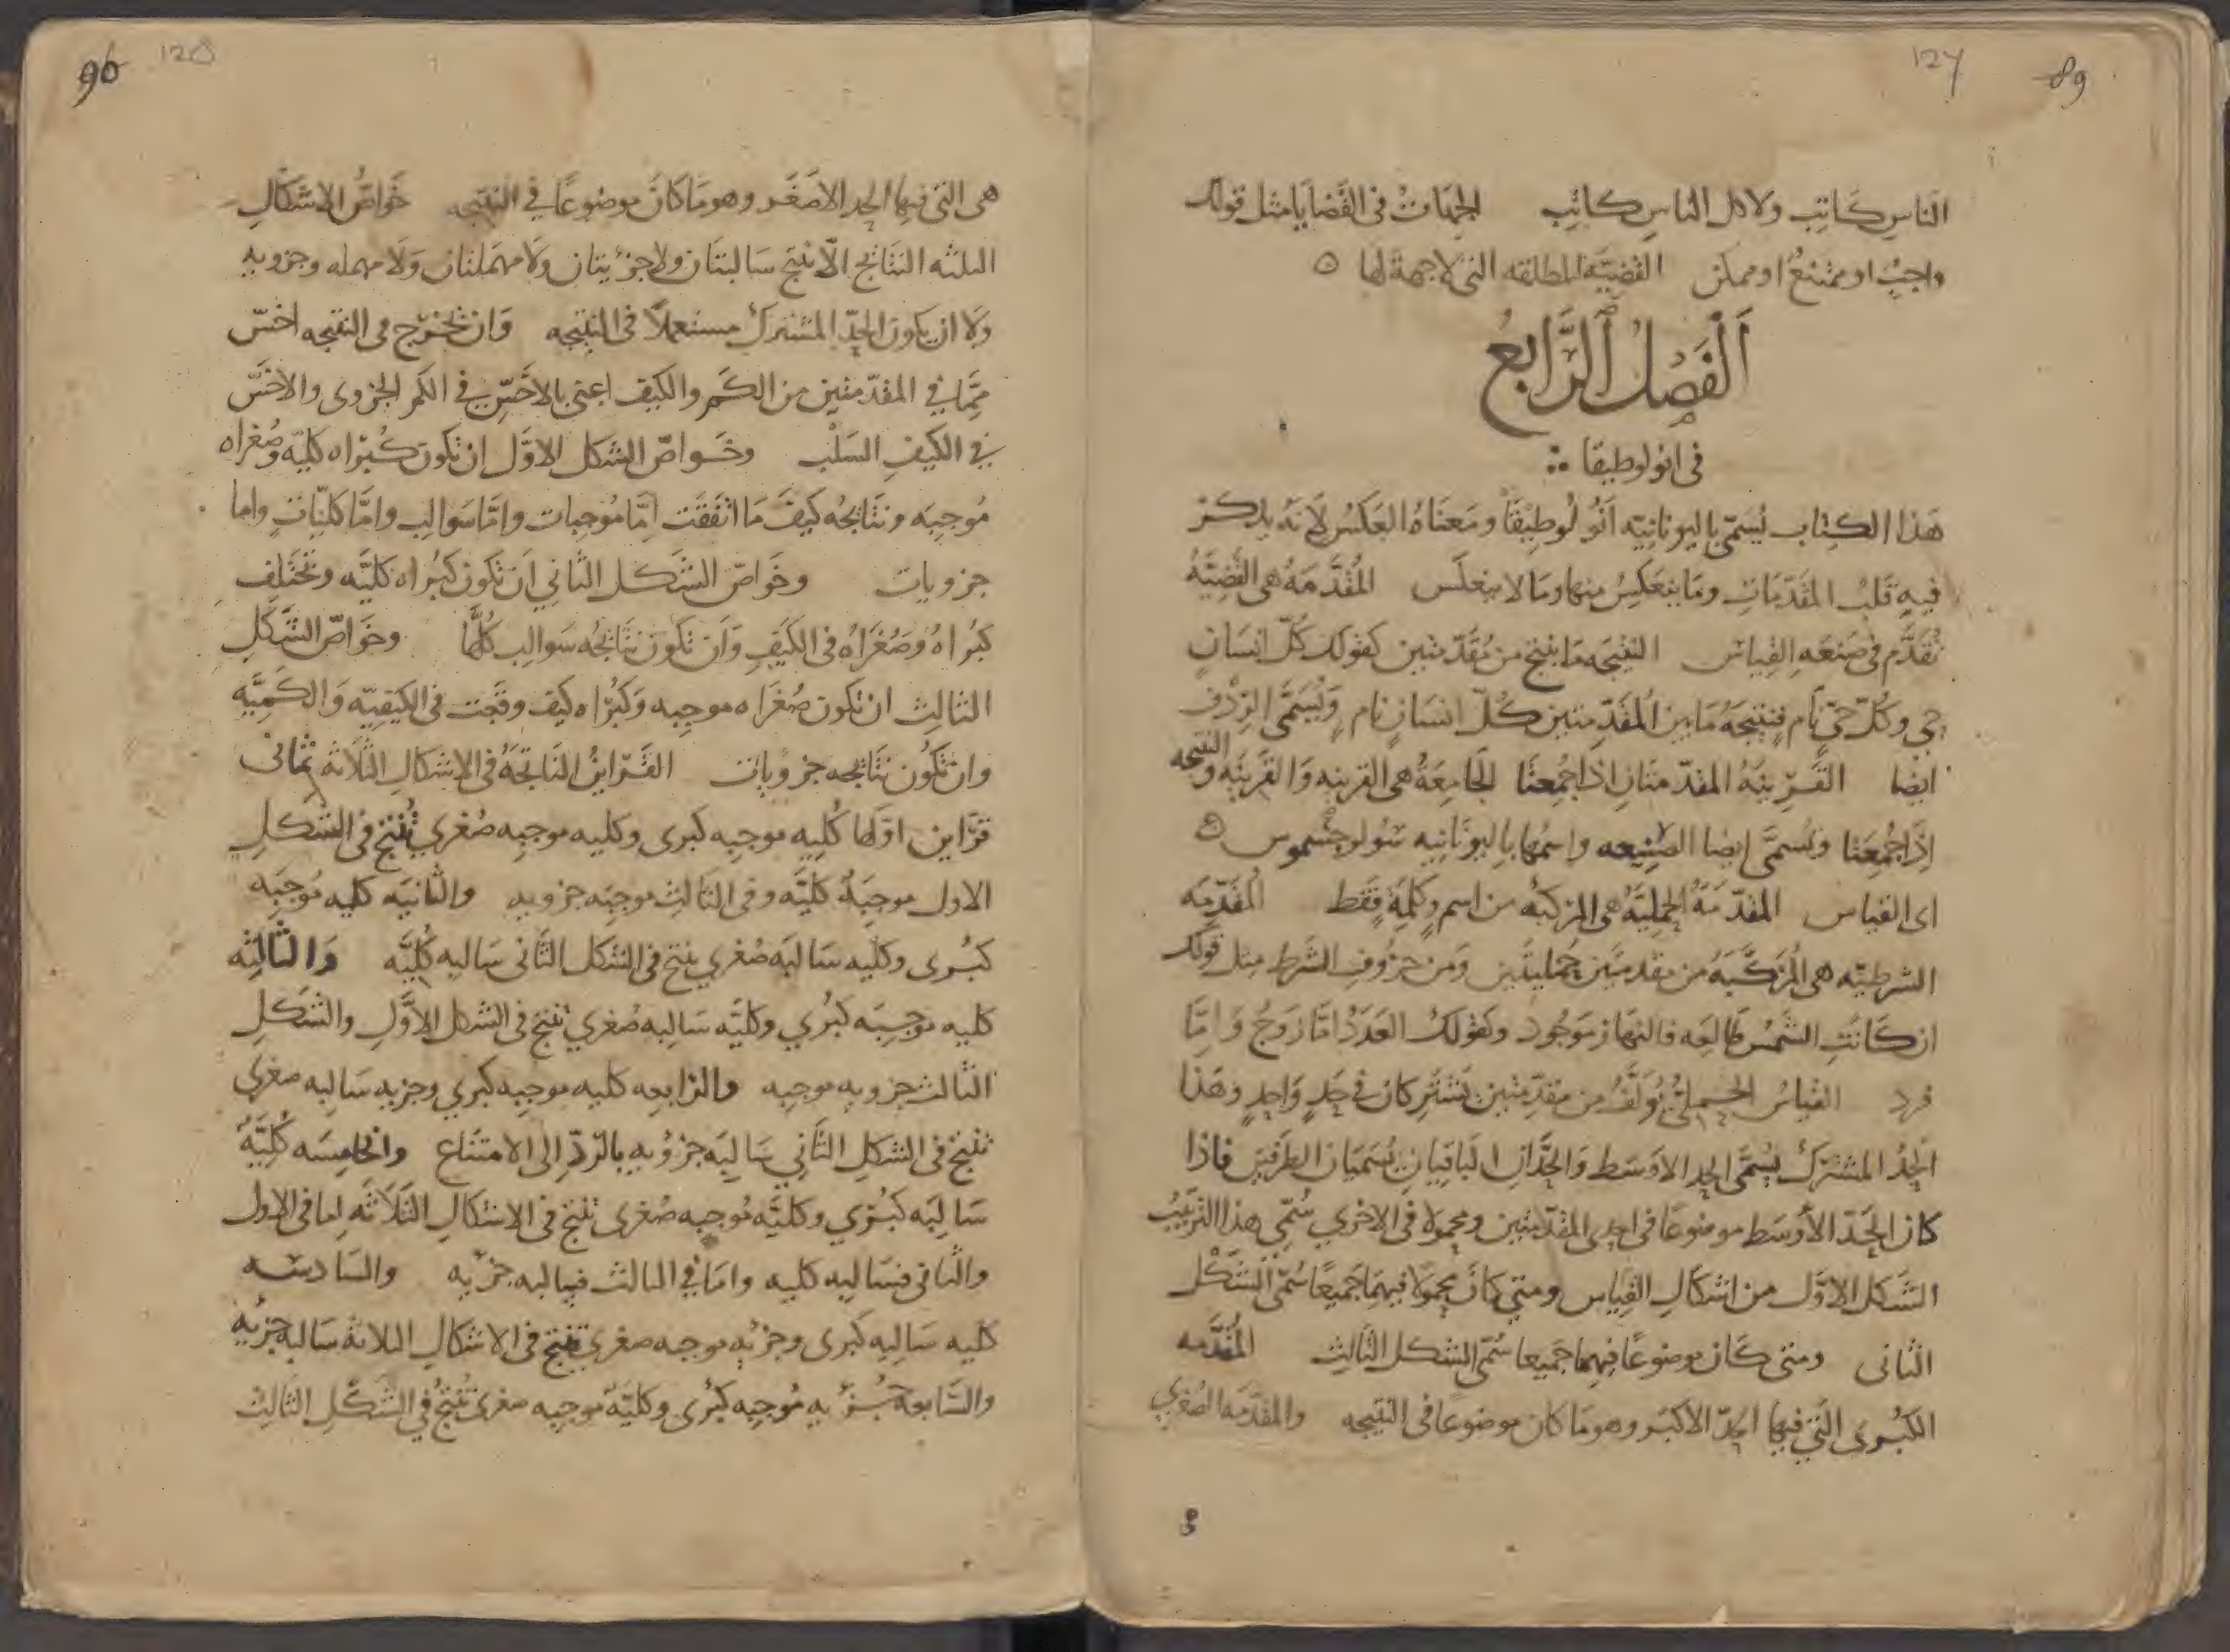 127 89
الناس كاتب ولا كل الناس كاتب الجهات في القضايا مثل قولك
واجب او ممتنع او ممكن القضيه المطلقه التي لا جهة لها ه
اَلْفَصْلُ اَلرَّابِعُ
في انولوطيقا
هَذا الكتاب يُسَمّى باليونانيّه اَنُولُوطِيقَا ومَعناهُ العَكسُ لانهُ يذكر
فيهِ قَلبُ المقدّمات وما ينعَكِسُ منها وما لا ينعكس المُقَدَّمَهُ هي القَضِيَّهُ
تُقَدَّم في صَنعَهِ القِياس النتيجَه مَا ينتج من مُقَدّمتين كقولك كُلّ انسَانٍ
حي وكُلّ حيّ نامٍ فنتيجَهُ مَا بين المُقَدّمتين كُلّ انسَانٍ نامٍ وَيُسَمَّى الرِدْف
ايضا القَرِينَهُ المقدّمتان اذا جُمِعتَا الجامِعَهُ هي القرينه وَالقَرينَه والنتيجه
اِذَا جُمِعَتا وتُسمَّى ايضا الصنيعه واسمُها باليونانيه سُولوجسموس ه
اي القياس المقدّمَهُ الحمليّهُ هي المركبَهُ من اسمٍ وكلمَةٍ فقَط المُقَدّمَه
الشرطيّه هي المُرَكَّبَهُ من مقدمتين حَمليتَين وَمن حرُوفِ الشَرط مثل قولك
ان كَانَتِ الشَّمْسُ طَالعَه فالنهار مَوجُود وكقولك العَدَدُ امَّا زَوجٌ وَامَّا
فرد القِياسُ الحملىّ يُوَلّفُ من مقدّمتين يَشتركان في حَدٍ وَاحدٍ وهَذا
الحدُ المشترك يُسَمَّى الحد الاوسَط وَالحَدَّانِ الباقيانِ يُسَمَّيَانِ الطرَفين فاذا
كان الحَدّ الأوسَط موضوعًا في احدى المقدّمتين ومحمولا في الاخري سُمّي هذا الترتيبُ
الشَكل الاوّل من اشكالِ القِياس ومتي كانَ محمولا فيهما جَميعًا سُمّى الشَكل
الثاني ومتي كَان موضوعًا فيهما جَميعا سُمّى الشكل الثالِث المُقَدَّمه
الكُبرى التي فيها الحدّ الاكبَر وهو مَا كان موضوعًا في النتيجه والمقدّمَه الصُغري
90 128
هى التي فيها الحد الاصْغَر وهو مَا كانَ موضوعًا في النتيجه خَواصُّ الاشكال
الثلثه النتائج الّا ينتج سَالبتَان ولا جزئيتان ولَا مهمَلتان وَلَا مهمله وجزويه
وَلا ان يكون الحدّ المشترك مستعملاً في النتيجه وَان تخرج في النتيجه اخَسّ
مِمَّا في المقدّمتين من الكَم والكَيف اعنى بالاخَسّ في الكم الجزوى والاخَسّ
في الكيف السَلْب وخَواصّ الشكل الاوَّل ان تكون كُبراه كليّه وصُغراه
مُوجِبَه ونتَائِجُه كيفَ مَا اتّفقَت اِمَّا مُوجِبات وامَّا سَوالِب وامَّا كلّيّاتٍ واما
جزويات وخَواصّ الشَكل الثاني اَن تكون كبُراه كليَّه وتختَلِف
كبُراهُ وصُغَراهُ في الكَيفِ وَاَن تكون نتَائجُه سَوالِب كُلَّها وخَواصّ الشَّكلِ
الثالِث ان تكون صُغَراه موجِبه وَكبُراه كيف وقَعَت في الكيفِيّه وَالكَميَّه
وان تكُون نتَائجه جزويات القَرَاينُ الناتجَهُ في الاشكالِ الثلاثه ثمانى
قرَاين اوّلها كُلِيه موجِبه كبرى وكليه موجبه صُغري تُنتج في الشكلِ
الاول موجِبَةً كلّيَّه وفي الثالِث موجبَه جزويه والثانيَه كليه مُوجبَه
كبُرى وكليه سَالبَه صُغري ينتج في الشكل الثَّاني سَالبه كُلِيَّه وَالثالِثه
كليه موجِبَه كبُري وكليَّه سَالِبه صُغري تنتج في الشكل الاوَّلِ والشَكلِ
الثالث جزويه موجبه والرابعه كليه موجِبه كبري وجزيه سَالِبه صغري
تُنتج في الشكلِ الثَّاني سَالِبَه جزويه بالرّدّ اِلى الامتنَاع والخامِسَه كُلِيَّهً
سَالِبَه كبُري وكليَّه مُوجبه صُغرى تنتج في الاشكالِ الثلاثَه اما في الاول
والثاني فسَالِبه كليه وامَا في الثالث فسالبه جزيه والسَادسَه
كليه سَالِبه كبرى وجزيه موجبه صغري تنتج في الاشكالِ الثلاثه سَالبه جزيه
والسَّابعَه جُزيه مُوجِبه كبُرى وكليَّه موجبه صغرى تُنتج في الشَكلِ الثَالِث